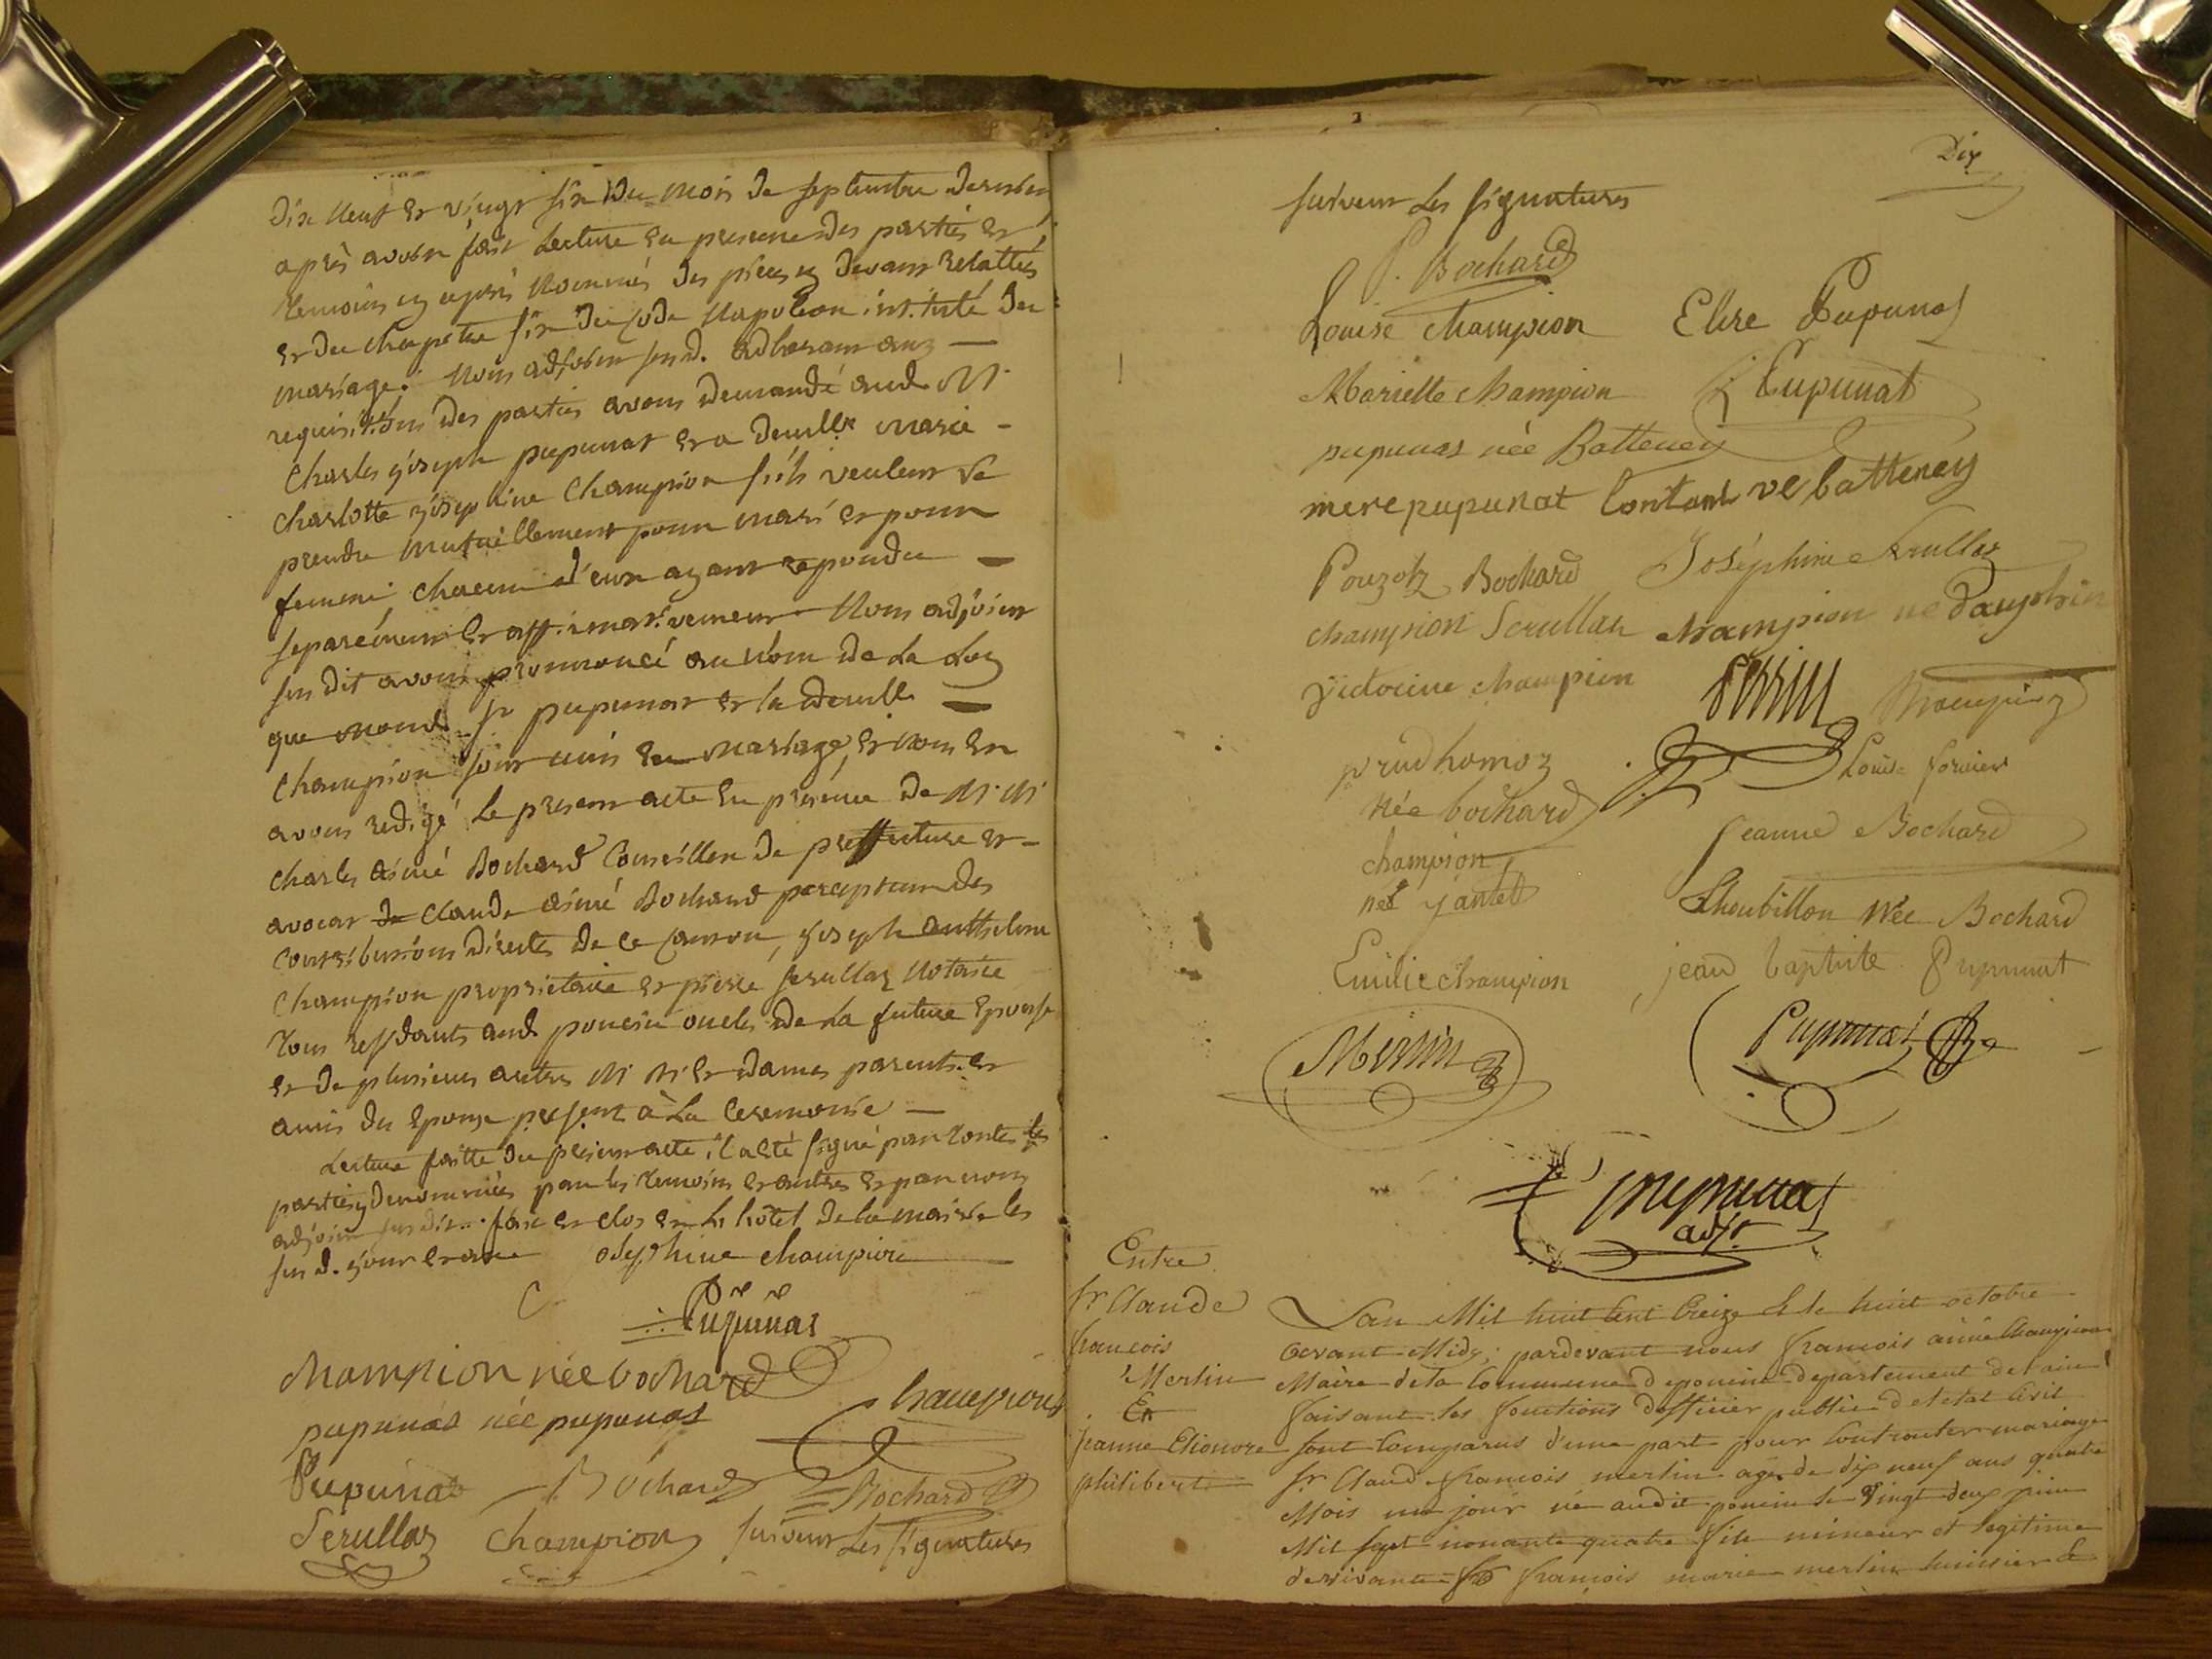 Dix neuf et vingt six du mois de septembre dernier
après avoir fait Lecture en presence des parties et
temoins cy après nommés des pieces cy devant relattés
et du chapitre six du Code Napoleon intitulé du
mariage. Nous adjoint susd. adherant aux
requisitions des parties avons demandé aud. M.
Charles joseph pupunat et a demlle marie
charlotte josephine Champion s'ils veulent se
prendre mutuellement pour mari et pour
femme chacun d'eux ayant repondu
separément et affirmativement Nous adjoint
sus dit avons prononcé au Nom de La Loy
que mond. sr pupunat et la demlle
Champion sont unis en mariage, et nous en
avons redigé Le present acte en présence de M. M.
Charles aimé Bochard Conseiller de preffecture et
avocat Claude aimé Bochard percepteur des
Contributions directes de ce Canton, joseph anthelme
Champion proprietaire et pierre serullaz Notaire
Tous residants aud. poncin oncles de La future Epouse
et de plusieurs autres M M et dames parents et
amis des Epoux present à La Ceremonie
Lecture faitte du present acte il a été signé par toutes les
parties y denommées par les temoins et autres et par nous
adjoint sus dit. fait et clos en L'hôtel de la mairie les
sus d. jour et an osephine champion
Pupunat
Champion née bochard
pupunat née pupunat Champion
Pupunat Bochard Bochard
Serullaz Champion suivent Les signatures
Dix
suivent Les signatures
P. Bochard
Louise Champion Elise Pupunat
Mariette Champion Pupunat
pupunat née Batteney
mere pupunat Contant ve batteney
Bochard Joséphine Serullaz
champion Serullaz champion né dauphin
champion Perrin
prudhomoz Louise
née bochard
Jeanne Bochard
champion
née jantet
née Bochard
Emilie Champion jean baptiste Pupunat
Merlin Pupunat
pupunat
adjt
Entre
sr Claude
francois
Merlin
Et
jeanne Elionore
philiberte
Lan Mil huit Cent treize et le huit octobre
avant Midy; pardevant nous francois aimé Champion
Maire de la Commune de poncin departement de l'ain
faisant les fonctions dofficier public de l'etat Civil
sont Comparus d'une part pour Contracter mariage
sr Claude francois merlin agé de dix neuf ans quatre
Mois un jour né audit poncin le vingt deux
Mil sept nonante quatre fils mineur et legitime
de vivante francois marie merlin huissier